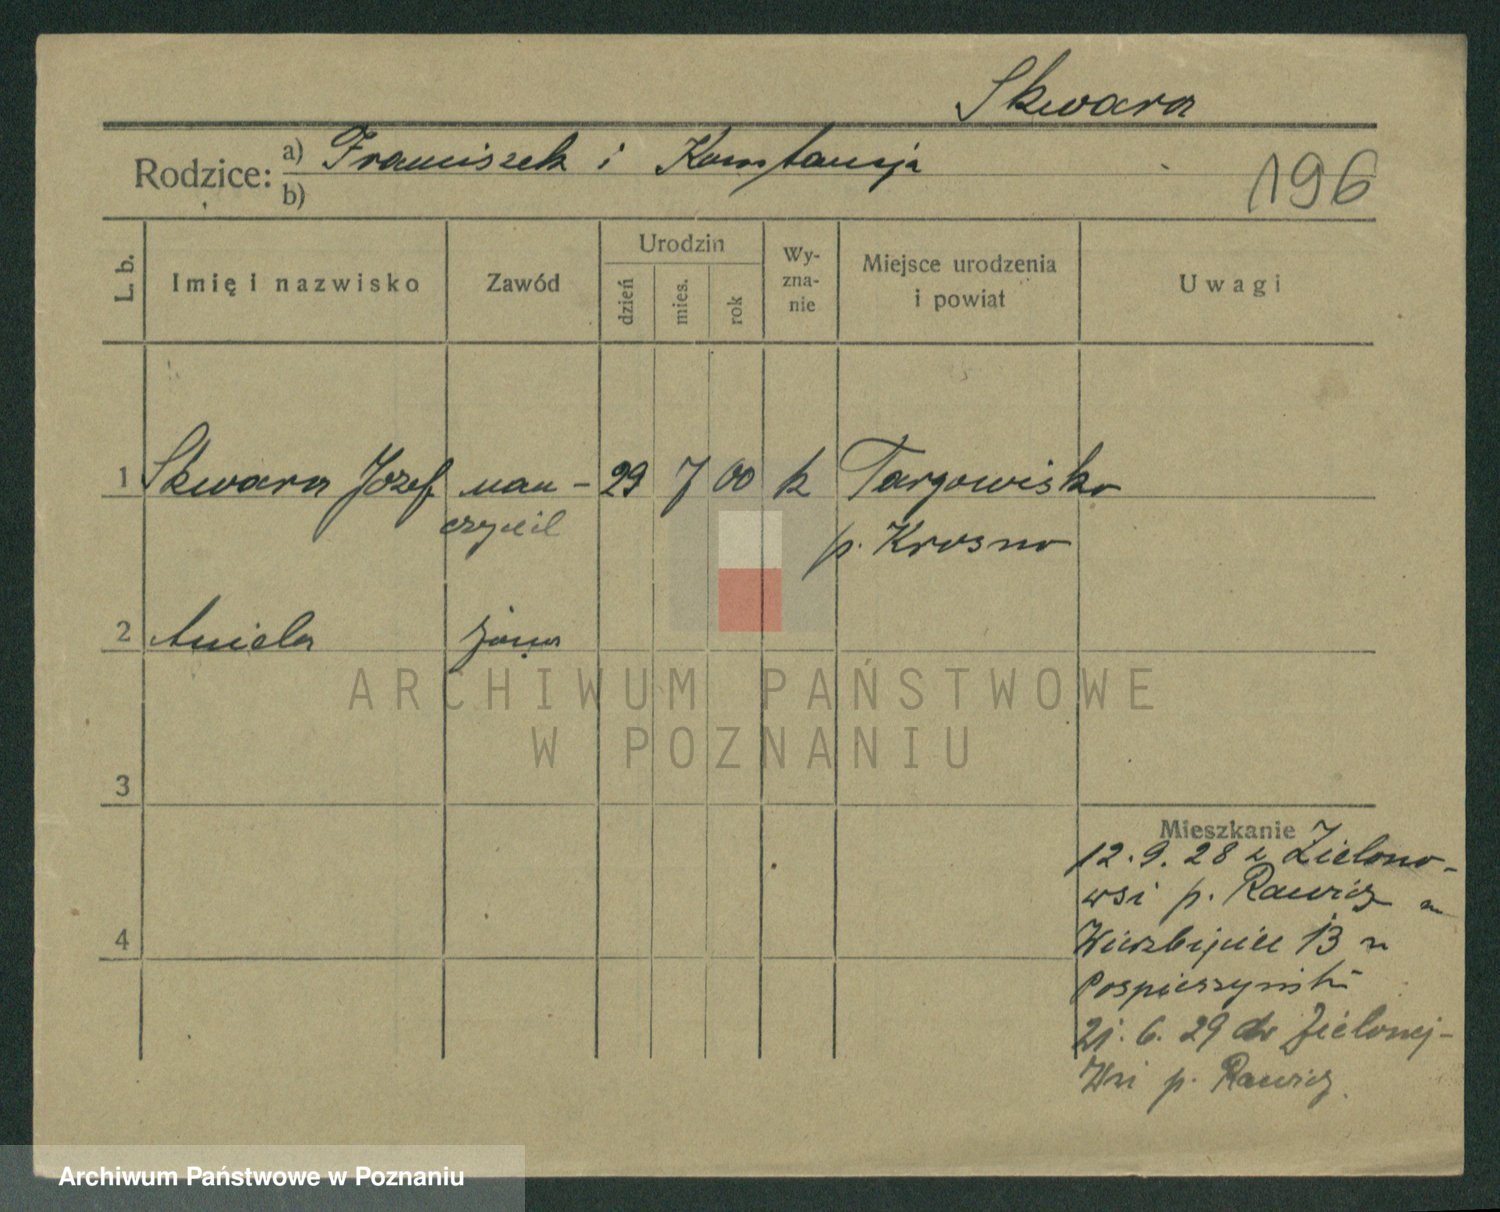 Skwara
Rodzice: a) Franciszek i Konstancja
b)
196
L. b.
Imię i nazwisko
Zawód
Urodzin
dzień
mies.
rok
Wy-
zna-
nie
Miejsce urodzenia
i powiat
Uwagi
1 Skwara Józef nau- 29 7 00 k Targowisko
czyciel p. Krosno
2 Aniela żona
ARCHIWUM PAŃSTWOWE
W POZNANIU
3
Mieszkanie
12.9.28 z Zielono-
wsi p. Rawicz
4
Wierzbięcice 13 u
21.6.29 do Zielonej-
Wsi p. Rawicz.
Archiwum Państwowe w Poznaniu